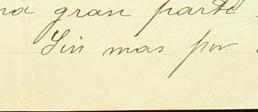 na gran parte
Sin mas por